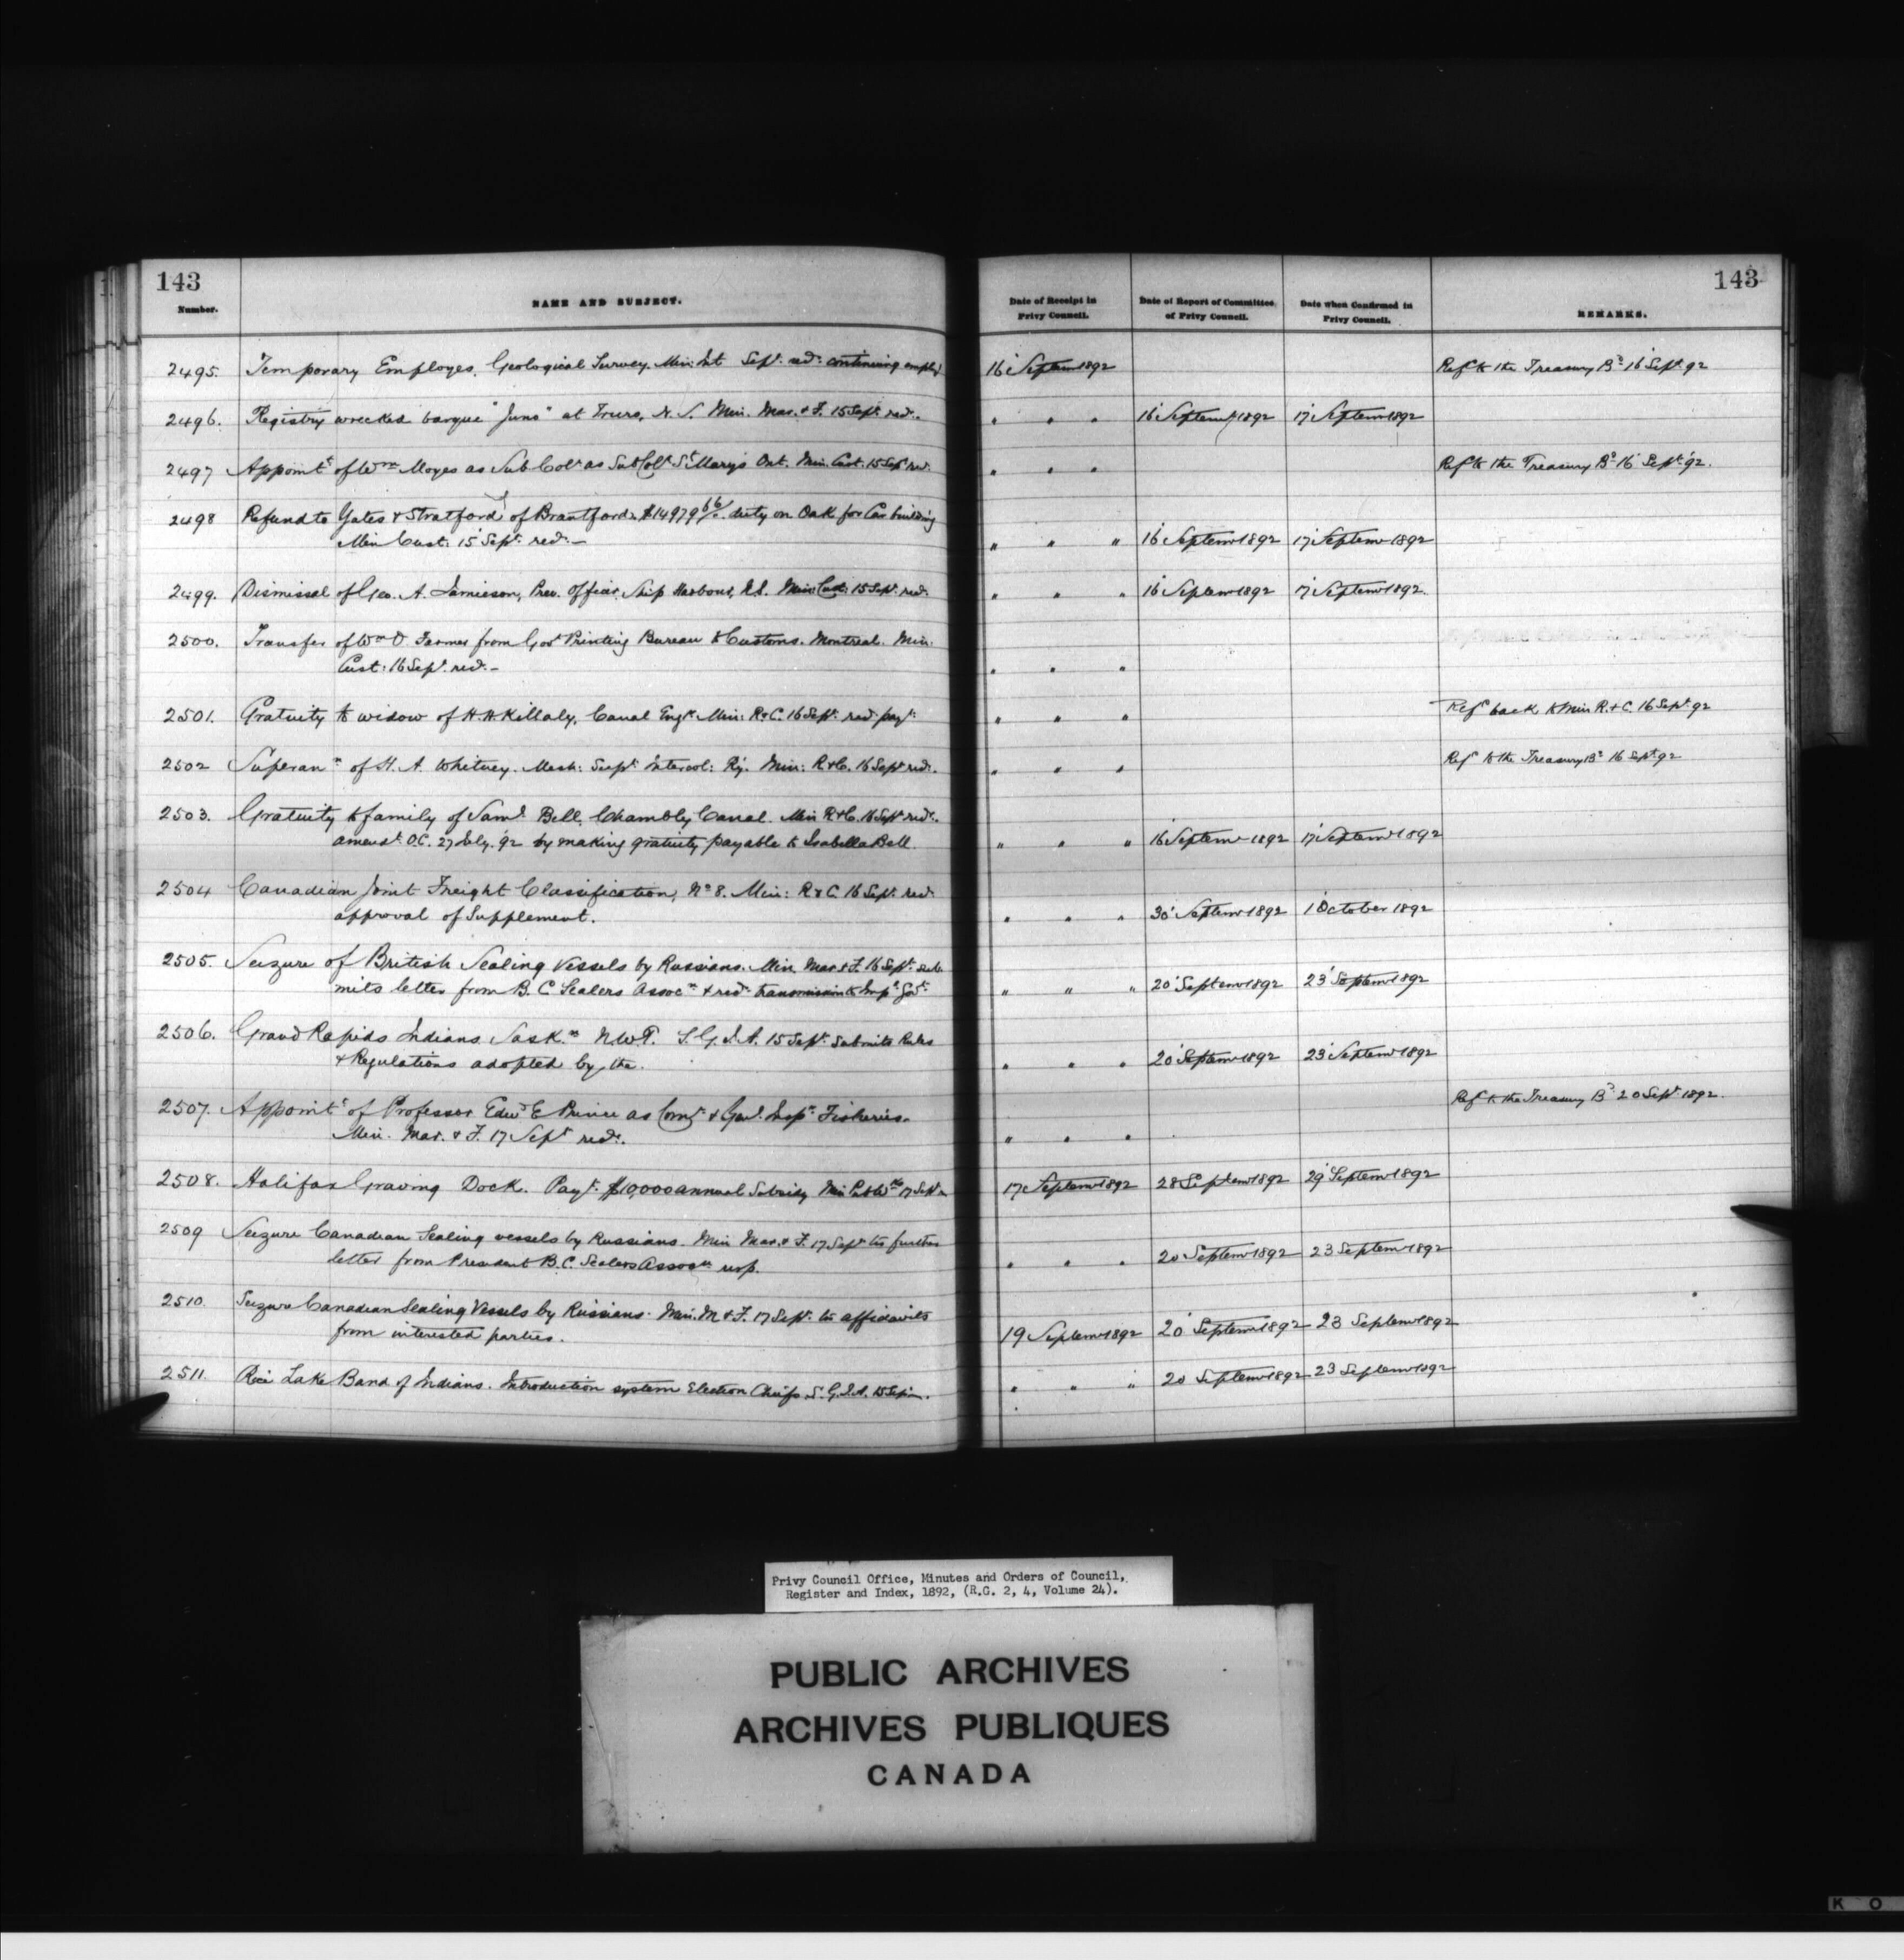 143 143
Number. NAME AND SUBJECT. Date of Receipt in Privy Council. Date of Report of Committee of Privy Council. Date when Confirmed in Privy Council. REMARKS.
2495. Temporary Employes, Geological Survey. Min: Int Sept. red: continuing empl 16 Septem 1892 Ref to the Treasury Bd 16 Sept 92
2496. Registry wrecked barque "Juno" at Truro, N. S. Min. Mar. & F. 15 Sept. red. " " " 16 Septem 1892 17 Septem 1892
2497 Appointt of Wm Moyes as Sub Colr as Sub Colr St Mary's Ont. Min. Cust. 15 Sept red. " " " Ref to the Treasury Bd 16 Sept 92.
2498 Refund to Yates & Stratford of Brantford $14979 66/ duty on Oak for Car building
Min Cust: 15 Sept. red. — " " " 16 Septemr 1892 17 Septemr 1892
2499. Dismissal of Geo. A. Jamieson, Prev. Officer, Ship Harbour, N.S. Min Cust: 15 Sept. red. " " " 16 Septemr 1892 17 Septemr 1892.
2500. Transfer of Wm O. Farmer from Govt Printing Bureau to Customs. Montreal. Min.
Cust: 16 Sept. red. — " " "
2501. Gratuity to widow of H. H. Killaly, Canal Engr. Min: R & C. 16 Sept. red. payt. " " " Ref back to Min R. & C. 16 Sept. 92
2502 Superann of H. A. Whitney. Mech: Supt. Intercol: Ry. Min: R & C. 16 Sept red. " " " Ref to the Treasury Bd 16 Sept 92
2503. Gratuity to family of Saml Bell, Chambly Canal. Min R & C. 16 Sept red.
amendt O.C. 27 July. 92 by making gratuity payable to Isabella Bell " " " 16 Septemr 1892 17 Septemr 1892
2504 Canadian Joint Freight Classification, No 8. Min: R & C. 16 Sept. red.
approval of Supplement. " " " 30 Septemr 1892 1 October 1892
2505. Seizure of British Sealing Vessels by Russians. Min Mar & F. 16 Sept. sub
mits letter from B. C Sealers Assocn & red. transmission to Impl Govt. " " " 20 Septemr 1892 23 Septemr 1892
2506. Grand Rapids Indians Saskn N.W.T. S. G. I. A. 15 Sept. submits Rules
& Regulations adopted by the. " " " 20 Septemr 1892 23 Septemr 1892
2507. Appointt of Professor Edwd E Prince as Comr & Genl. Inspr Fisheries. Ref to the Treasury Bd 20 Sept 1892.
Min. Mar. & F. 17 Sept red. " " "
2508. Halifax Graving Dock. Payt. $10,000 annual Subsidy Min Pub Wks 17 Sept 17 Septemr 1892 28 Septemr 1892 29 Septemr 1892
2509 Seizure Canadian Sealing vessels by Russians. Min Mar. & F. 17 Sept trs further
letter from President B. C. Sealers Assocn resp. " " " 20 Septemr 1892 23 Septemr 1892
2510. Seizure Canadian Sealing Vessels by Russians. Min. M & F. 17 Sept. trs affidavits
from interested parties. 19 Septemr 1892 20 Septemr 1892 23 Septemr 1892
2511. Rice Lake Band of Indians. Introduction system Election Chiefs. S. G. I. A. 15 Sept. " " " 20 Septemr 1892 23 Septemr 1892
Privy Council Office, Minutes and Orders of Council,
Register and Index, 1892, (R.G. 2, 4, Volume 24).
PUBLIC ARCHIVES
ARCHIVES PUBLIQUES
CANADA
K O